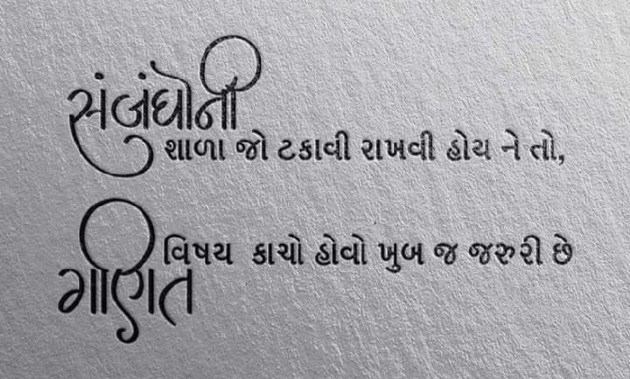 સંબંધોની
શાળા જો ટકાવી રાખવી હોય ને તો,
ગણિત
વિષય કાચો હોવો ખુબ જ જરુરી છે